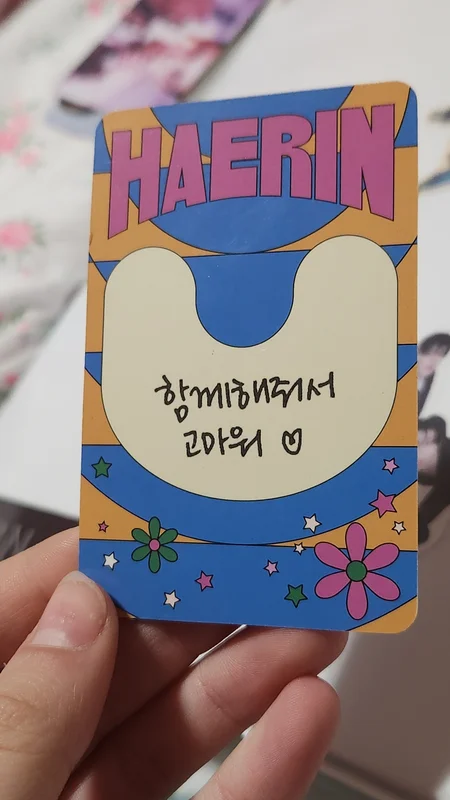 HAERIN
함께해줘서
고마워 ♡